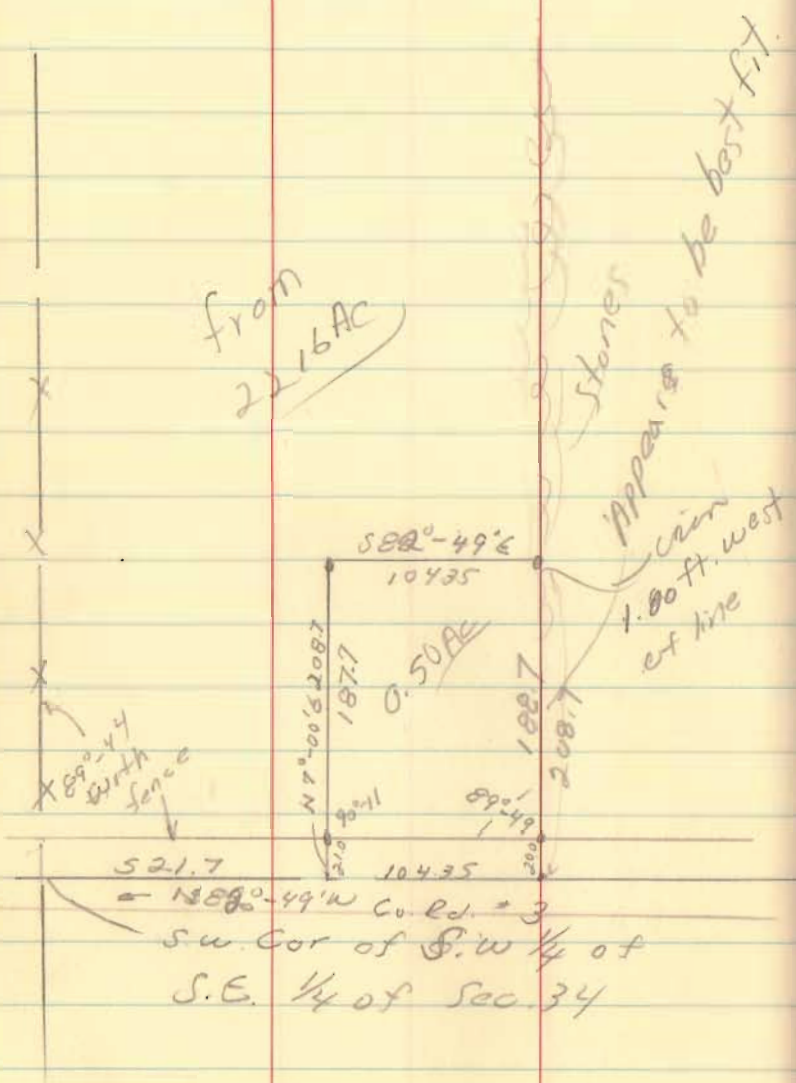 from
22.16 AC
Stones
Appears to be best fit.
1.80 ft. west
of line
S 82°-49'E
104.35
208.7
187.7
0.50 AC
188.7
208.7
89°-44
with
fence
90°-11
89°-49'
521.7
21.0
104.35
20.0
-49'W Co. Rd. # 3
S.W. Cor of S.W 1/4 of
S.E. 1/4 of Sec. 34